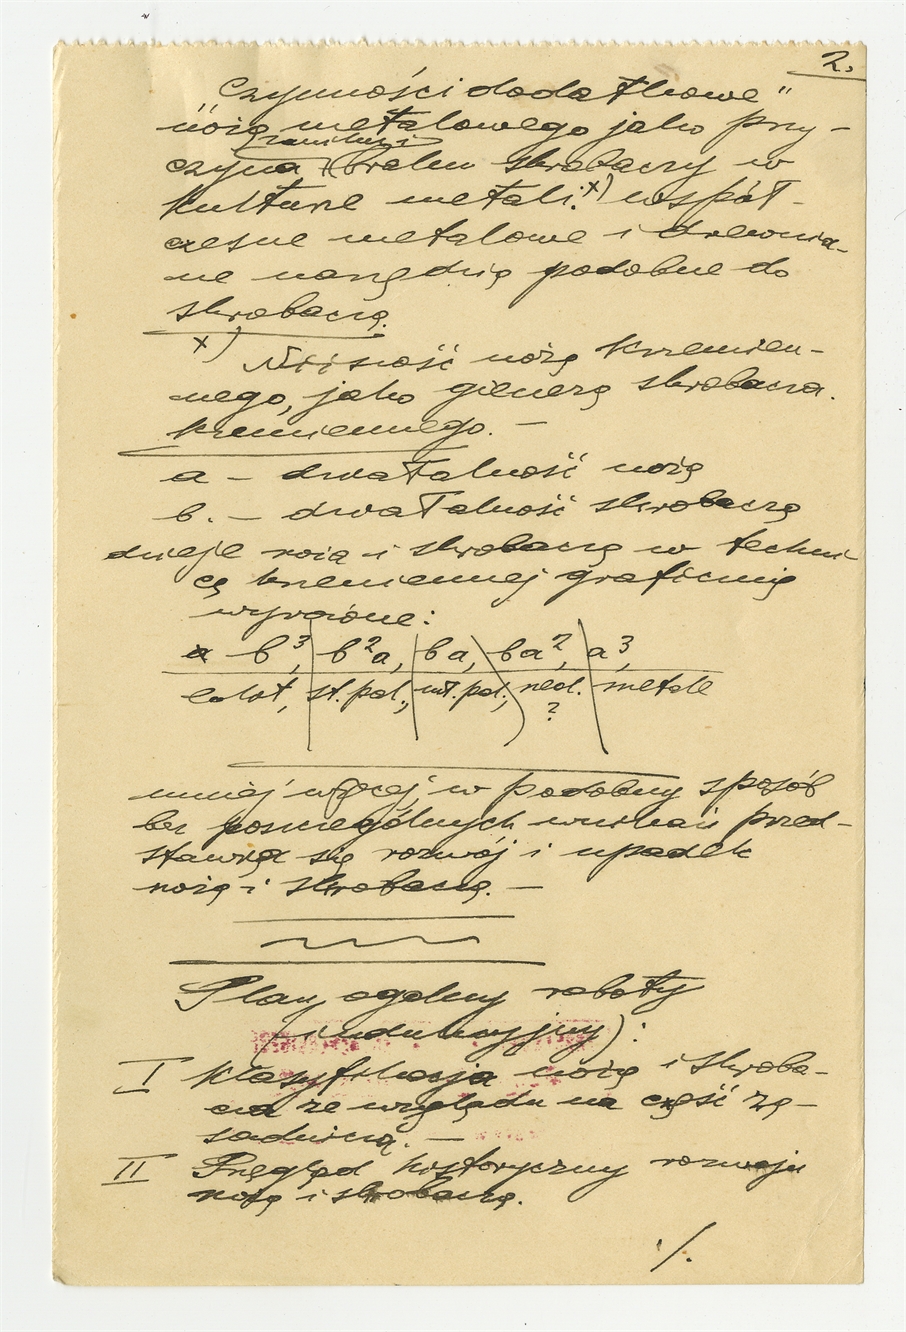 2.
„Czynności dodatkowe"
noża metalowego jako przy-
czyna braku skrobaczy w
kulturze metali.x) współ-
czesne metalowe i drewnia-
ne narzędzia podobne do
skrobacza.
x) Niższość noża krzemien-
nego, jako geneza skrobacza
krzemiennego. —
a – działalność noża
b. – działalność skrobacza
dzieje noża i skrobacza w techni
ce krzemiennej graficznie
wyrażone:
b³, b²a, ba, ba², a³,
eolot, st. pal., mł. pal., neol. metale
?
mniej więcej w podobny sposób
bez poszczególnych wahań przed-
stawia się rozwój i upadek
noża i skrobacza. —
Plan ogólny roboty
(indukcyjny):
I Klasyfikacja noża i skroba-
cza ze względu na część za-
sadniczą. —
II Przegląd historyczny rozwoju
noża i skrobacza.
./.